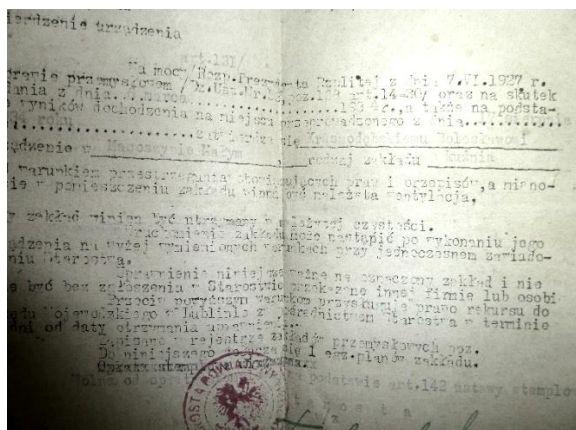 ierdzenie urządzenia
art-131/
Na mocy Rozp. Prezydenta Rzplitej z dnia 7.VI.1927 r.
przemysłowem /Dz.Ust.Nr. poz. art.14-30/ oraz na skutek
dania z dnia marca 193 r., a także na podsta-
wyników dochodzenia na miejscu przeprowadzonego z dnia
34 roku zatwierdza się Krasnodębskiemu Bolesławowi
ządzenie w Małym, rodzaj zakładu kuźnia
warunkiem przestrzegania obowiązujących praw i przepisów, a miano-
cie w pomieszczeniu zakładu winna być należyta wentylacja,
y zakład winien być utrzymany w należytej czystości.
Uruchomienie zakładu może nastąpić po wykonaniu jego
ądzenia na wyżej wymienionych warunkach przy jednoczesnem zawiado-
niu Starostwa.
Uprawnienie niniejsze ważne na oznaczony zakład i nie
e być bez zgłoszenia w Starostwie przekazane innej firmie lub osobi-
Przeciw powyższym warunkom przysługuje prawo rekursu do
ędu Wojewódzkiego w Lublinie za pośrednictwem Starostwa w terminie
dni od daty otrzymania
Wpisano w rejestrze zakładów przemysłowych poz.
Do niniejszego dołącza się 1 egz. planów zakładu.
Wolne od podstawie art.142 ustawy stemplow
o s t a